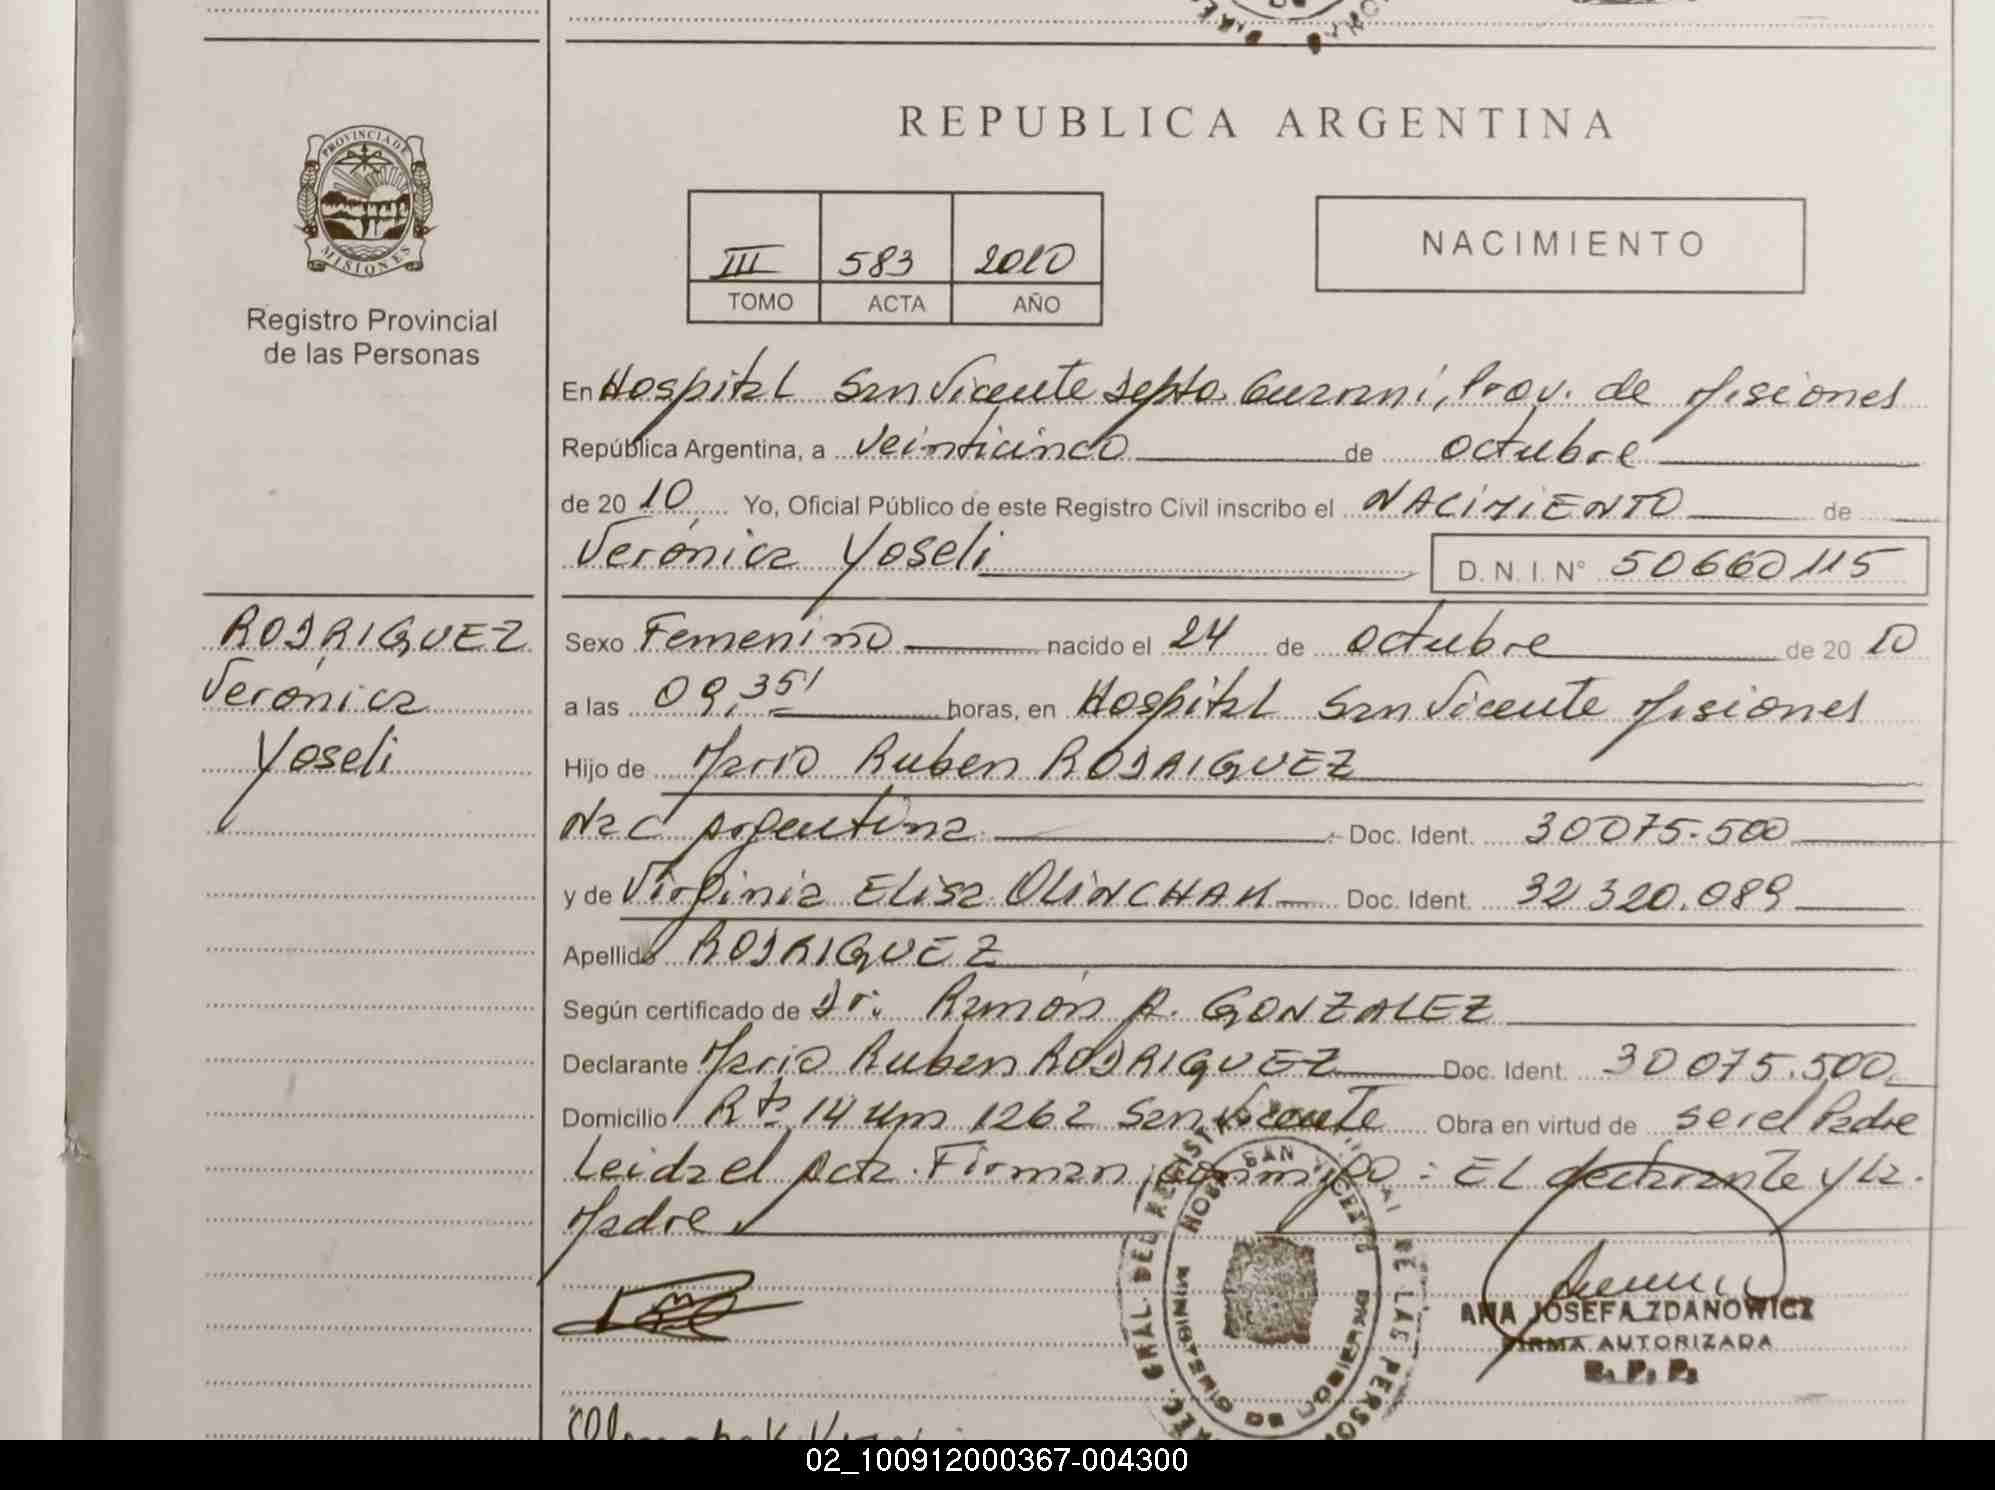 REPUBLICA ARGENTINA
PROVINCIA DE
MISIONES
Registro Provincial
de las Personas
III 583 2010
TOMO ACTA AÑO
NACIMIENTO
En Hospital San Vicente Depto. Guaraní, Prov. de Misiones
República Argentina, a veinticinco de octubre
de 2010 Yo, Oficial Público de este Registro Civil inscribo el NACIMIENTO de
Verónica Yoseli D.N.I. N° 50660115
RODRIGUEZ
Verónica
Yoseli
Sexo Femenino nacido el 24 de octubre de 2010
a las 09,35' horas, en Hospital San Vicente Misiones
Hijo de Mario Ruben RODRIGUEZ
Nac argentina Doc. Ident. 30075.500
y de Virginia Elisa OLINCHAK Doc. Ident. 32320.089
Apellido RODRIGUEZ
Según certificado de Dr. Ramón A. GONZALEZ
Declarante Mario Ruben RODRIGUEZ Doc. Ident. 30075.500
Domicilio Rta 14 Km 1262 San Vicente Obra en virtud de ser el Padre
Leida el Acta. Firman conmigo: El declarante y la
Madre
HOSP. SAN VICENTE
ANA JOSEFA ZDANOWICZ
FIRMA AUTORIZADA
R. P. P.
02_100912000367-004300